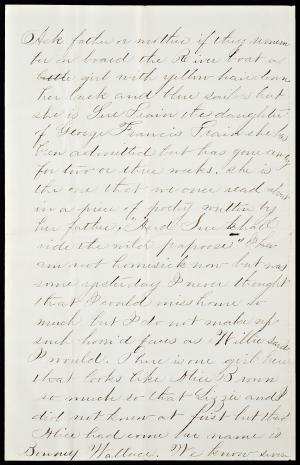 Ask father or mother if they remem
ber on board the River boat a
little girl with yellow hair down
her back and blue sailor hat
she is Sue Train the daughter
of George Francis Train she has
been admitted but has gone away
for two or three weeks. she is
the one that we once read about
in a piece of poetry written by
her father. "And Sue shall
ride the wild papoose"
am not homesick now but was
some yesterday I never thought
that I could miss home so
much but I do not make up
such horrid faces as Willie said
I would. There is one girl here
that looks like Alice Brown
so much so that Lizzie and I
did not know at first but that
Alice had come her name is
Bonney Wallace. We know seven